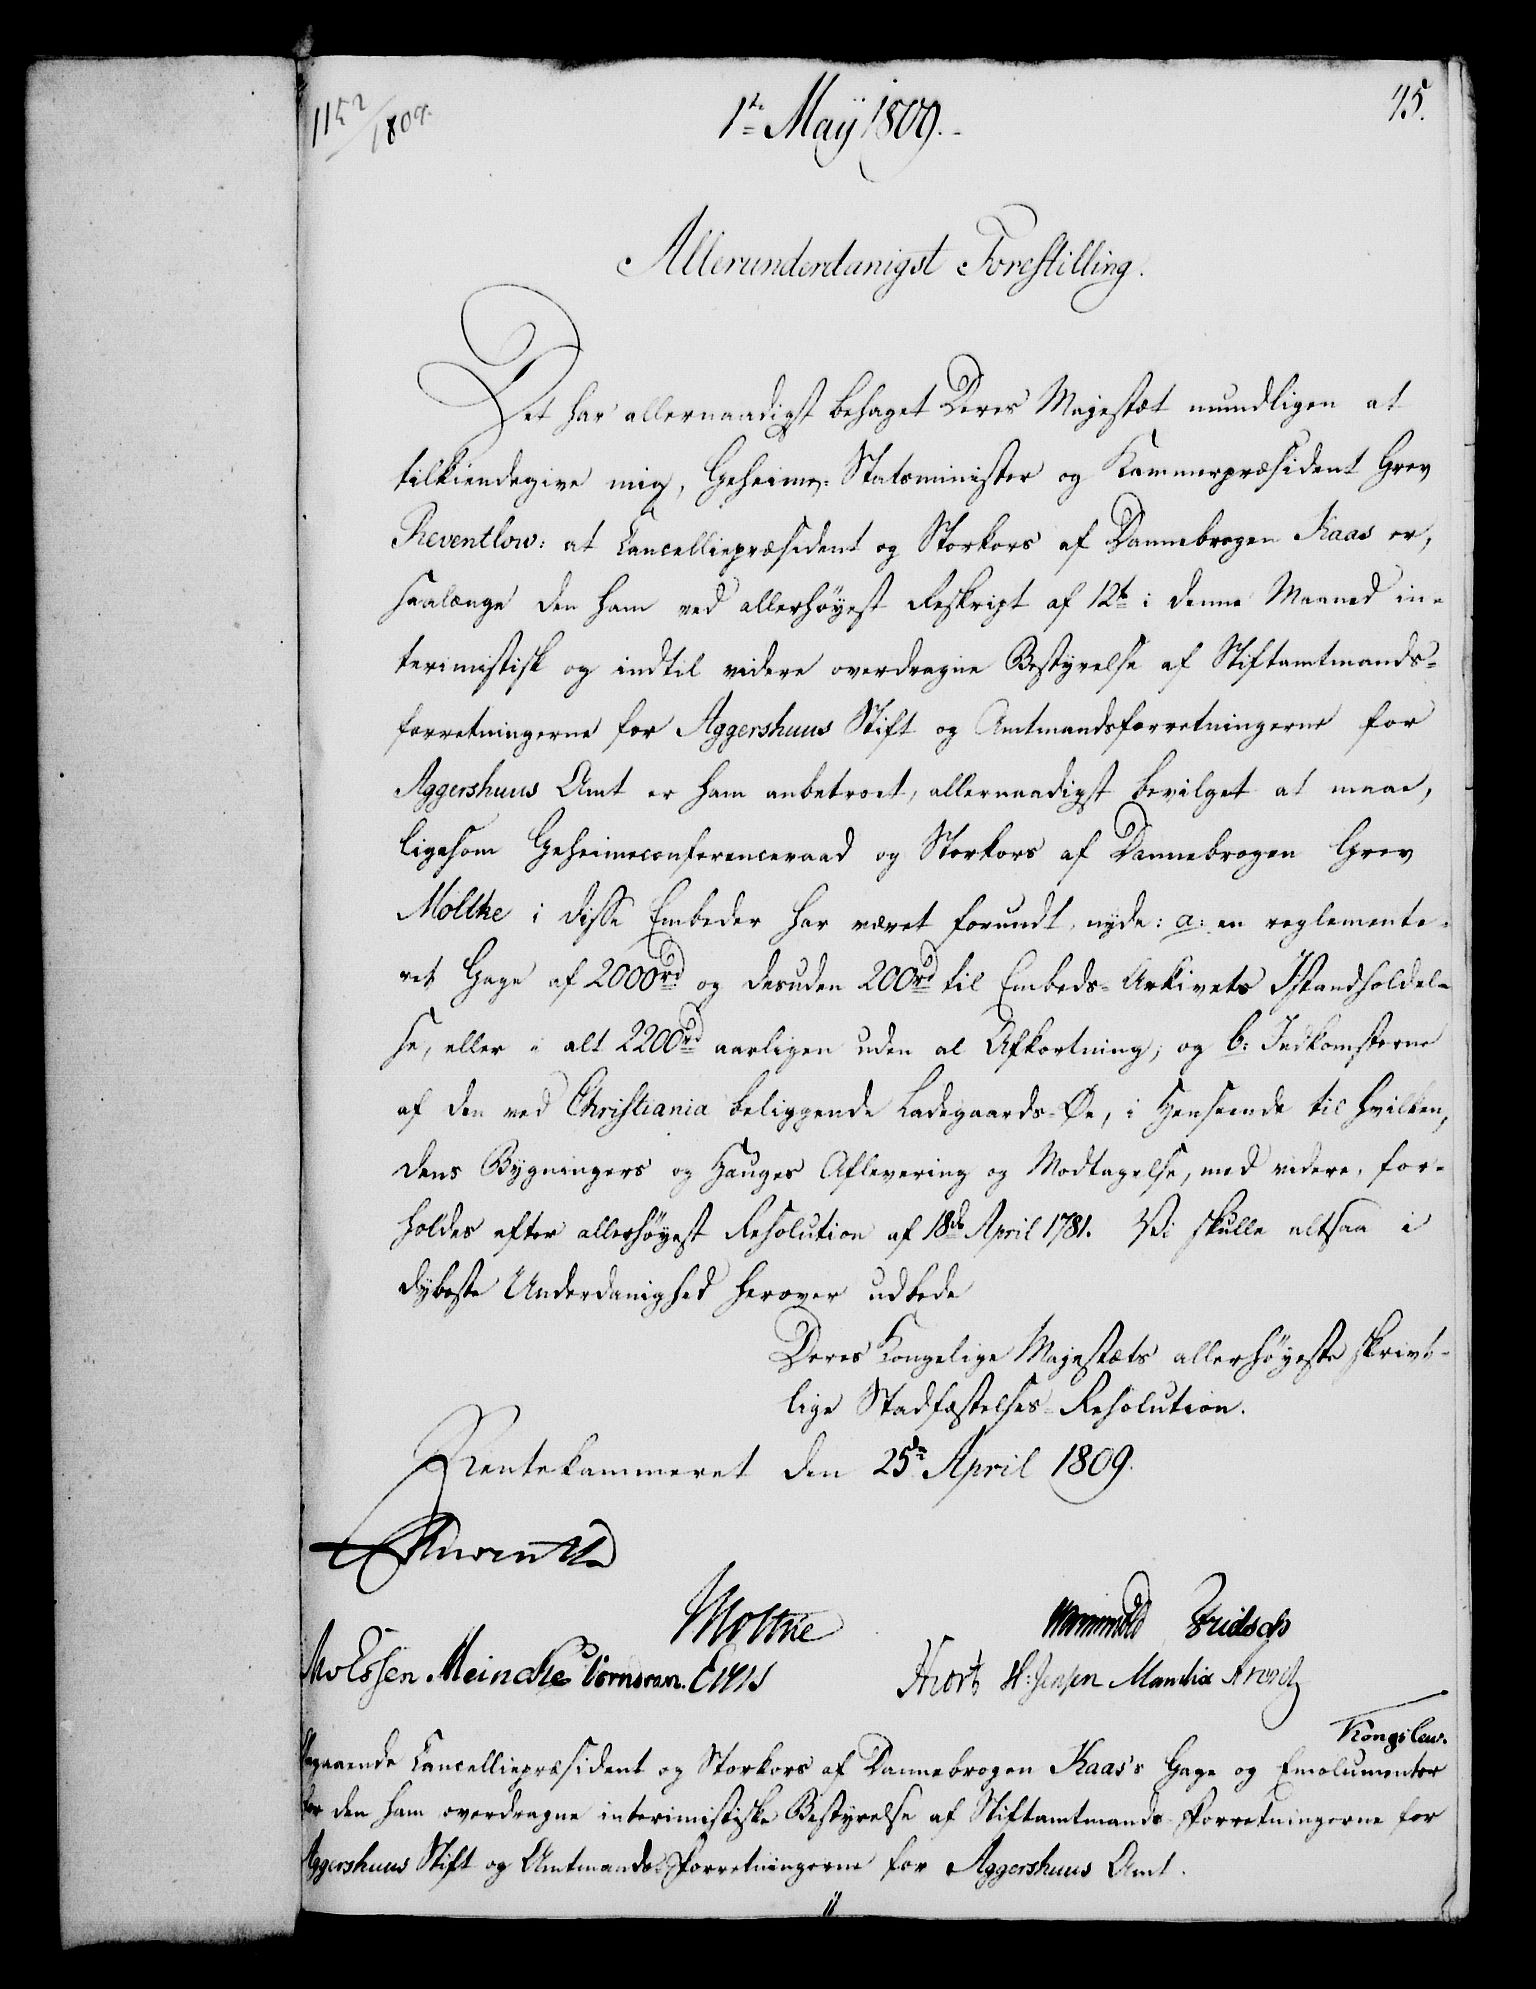 1152/1809.
1te May 1809.
75.
Allerunderdanigst Forestilling.
Det har allernaadigst behaget Deres Majestæt mundligen at
tilkiendegive mig, Geheime-Statsminister og Kammerpræsident Grev
Reventlow: at Cancelliepræsident og Storkors af Dannebrogen Kaas er,
saalænge den ham ved allerhøyest Reskript af 12te i denne Maaned in-
terimistisk og indtil videre overdragne Bestyrelse af Stiftamtmands-
forretningerne for Aggershuus Stift og Amtmandsforretningerne for
Aggershuus Amt er ham anbetroet, allernaadigst bevilget at maae,
ligesom Geheimeconferenceraad og Storkors af Dannebrogen Grev
Moltke i disse Embeder har været forundt, nyde: a: en reglemente-
ret Gage af 2000rd og desuden 200rd til Embeds-Arkivets Istandholdel-
se, eller i alt 2200rd aarligen uden al Afkortning; og b: Indkomsterne
af den ved Christiania beliggende Ladegaards-Øe, i Henseende til hvilken,
dens Bygningers og Hauges Aflevering og Modtagelse, med videre, for-
holdes efter allerhøyest Resolution af 18de April 1781. Vi skulle altsaa i
dybeste Underdanighed herover udbede
Deres Kongelige Majestæts allerhøyeste skrivt-
lige Stadfæstelses-Resolution.
Rentekammeret den 25de April 1809.
Reventlow
Moltke
Wormskiold Fridsch
Meincke Vornoran.
Hiort H: Jensen Manthic Arend
Kongslew.
Angaaende Cancelliepræsident og Storkors af Dannebrogen Kaas's Gage og Emolumenter
for den ham overdragne interimistiske Bestyrelse af Stiftamtmands-Forretningerne for
Aggershuus Stift og Amtmands-Forretningerne for Aggershuus Amt.